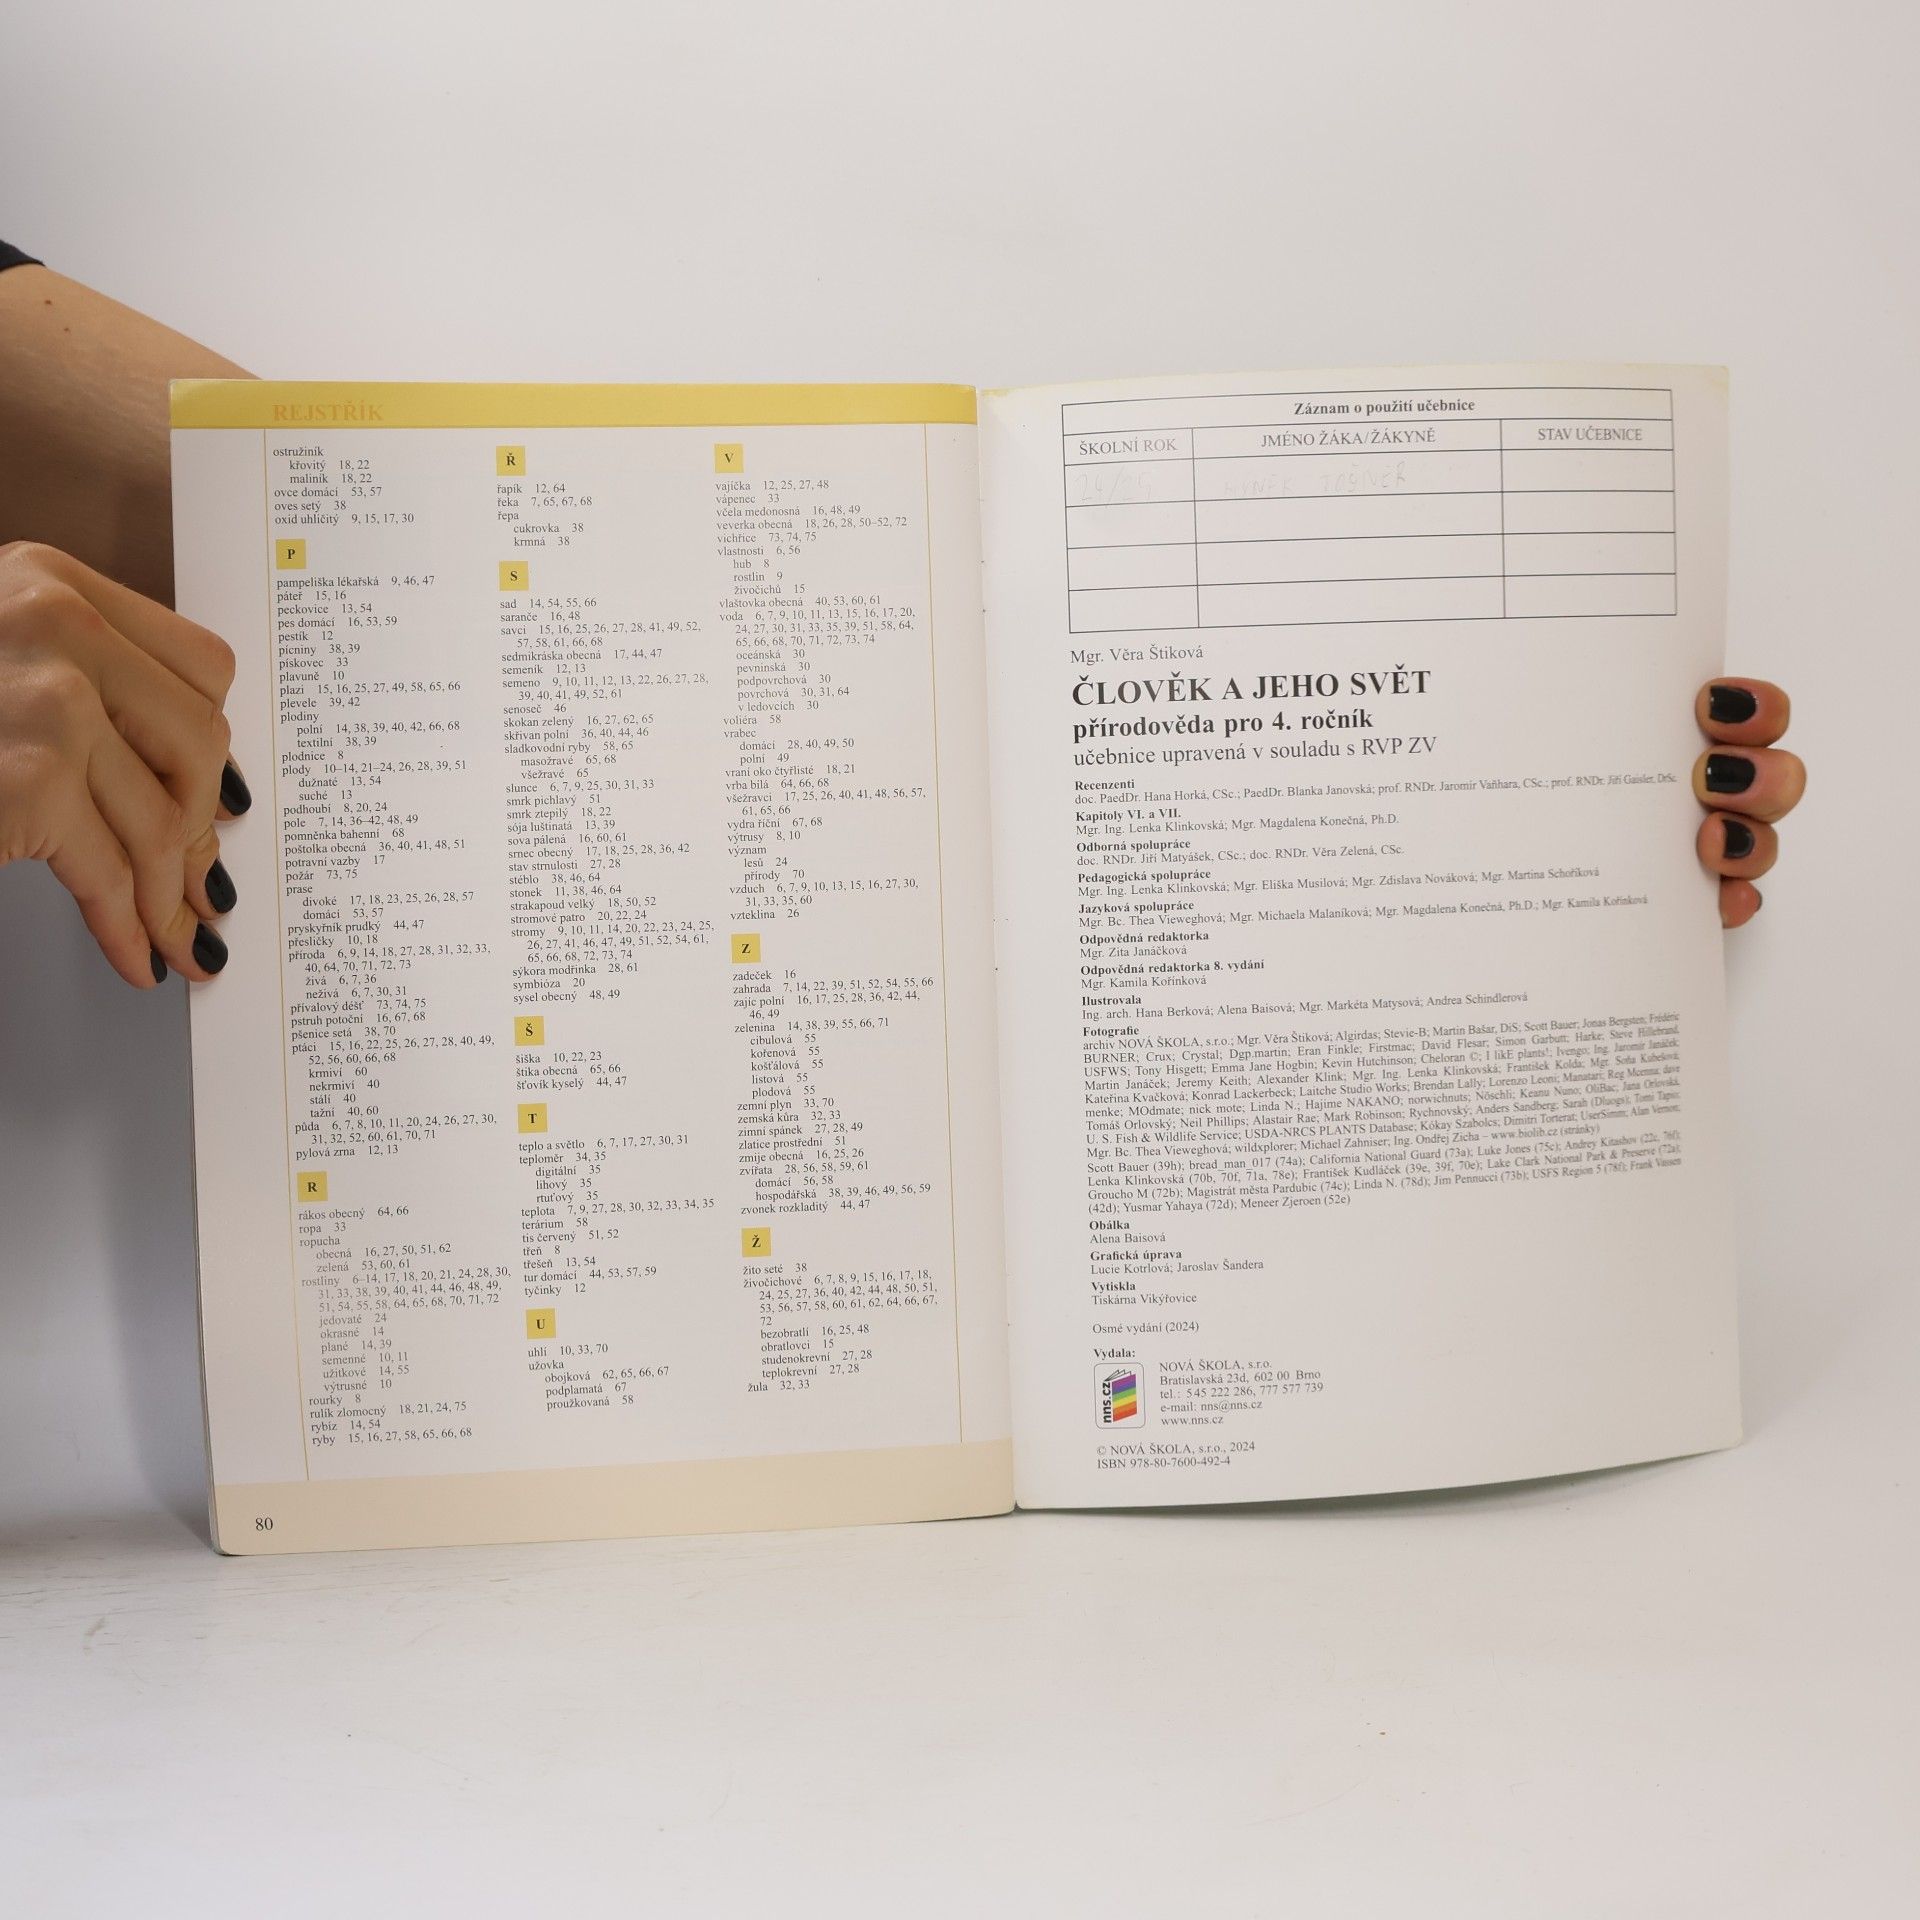 REJSTŘÍK
ostružiník
křovitý 18, 22
maliník 18, 22
ovce domácí 53, 57
oves setý 38
oxid uhličitý 9, 15, 17, 30
P
pampeliška lékařská 9, 46, 47
páteř 15, 16
peckovice 13, 54
pes domácí 16, 53, 59
pestík 12
pícniny 38, 39
pískovec 33
plavuně 10
plazi 15, 16, 25, 27, 49, 58, 65, 66
plevele 39, 42
plodiny
polní 14, 38, 39, 40, 42, 66, 68
textilní 38, 39
plodnice 8
plody 10–14, 21–24, 26, 28, 39, 51
dužnaté 13, 54
suché 13
podhoubí 8, 20, 24
pole 7, 14, 36–42, 48, 49
pomněnka bahenní 68
poštolka obecná 36, 40, 41, 48, 51
potravní vazby 17
požár 73, 75
prase
divoké 17, 18, 23, 25, 26, 28, 57
domácí 53, 57
pryskyřník prudký 44, 47
přesličky 10, 18
příroda 6, 9, 14, 18, 27, 28, 31, 32, 33,
40, 64, 70, 71, 72, 73
živá 6, 7, 36
neživá 6, 7, 30, 31
přívalový déšť 73, 74, 75
pstruh potoční 16, 67, 68
pšenice setá 38, 70
ptáci 15, 16, 22, 25, 26, 27, 28, 40, 49,
52, 56, 60, 66, 68
krmiví 60
nekrmiví 40
stálí 40
tažní 40, 60
půda 6, 7, 8, 10, 11, 20, 24, 26, 27, 30,
31, 32, 52, 60, 61, 70, 71
pylová zrna 12, 13
R
rákos obecný 64, 66
ropa 33
ropucha
obecná 16, 27, 50, 51, 62
zelená 53, 60, 61
rostliny 6–14, 17, 18, 20, 21, 24, 28, 30,
31, 33, 38, 39, 40, 41, 44, 46, 48, 49,
51, 54, 55, 58, 64, 65, 68, 70, 71, 72
jedovaté 24
okrasné 14
plané 14, 39
semenné 10, 11
užitkové 14, 55
výtrusné 10
rourky 8
rulík zlomocný 18, 21, 24, 75
rybíz 14, 54
ryby 15, 16, 27, 58, 65, 66, 68
80
Ř
řapík 12, 64
řeka 7, 65, 67, 68
řepa
cukrovka 38
krmná 38
S
sad 14, 54, 55, 66
saranče 16, 48
savci 15, 16, 25, 26, 27, 28, 41, 49, 52,
57, 58, 61, 66, 68
sedmikráska obecná 17, 44, 47
semeník 12, 13
semeno 9, 10, 11, 12, 13, 22, 26, 27, 28,
39, 40, 41, 49, 52, 61
senoseč 46
skokan zelený 16, 27, 62, 65
skřivan polní 36, 40, 44, 46
sladkovodní ryby 58, 65
masožravé 65, 68
všežravé 65
slunce 6, 7, 9, 25, 30, 31, 33
smrk pichlavý 51
smrk ztepilý 18, 22
sója luštinatá 13, 39
sova pálená 16, 60, 61
srnec obecný 17, 18, 25, 28, 36, 42
stav strnulosti 27, 28
stéblo 38, 46, 64
stonek 11, 38, 46, 64
strakapoud velký 18, 50, 52
stromové patro 20, 22, 24
stromy 9, 10, 11, 14, 20, 22, 23, 24, 25,
26, 27, 41, 46, 47, 49, 51, 52, 54, 61,
65, 66, 68, 72, 73, 74
sýkora modřinka 28, 61
symbióza 20
sysel obecný 48, 49
Š
šiška 10, 22, 23
štika obecná 65, 66
šťovík kyselý 44, 47
T
teplo a světlo 6, 7, 17, 27, 30, 31
teploměr 34, 35
digitální 35
lihový 35
rtuťový 35
teplota 7, 9, 27, 28, 30, 32, 33, 34, 35
terárium 58
tis červený 51, 52
třeň 8
třešeň 13, 54
tur domácí 44, 53, 57, 59
tyčinky 12
U
uhlí 10, 33, 70
užovka
obojková 62, 65, 66, 67
podplamatá 67
proužkovaná 58
V
vajíčka 12, 25, 27, 48
vápenec 33
včela medonosná 16, 48, 49
veverka obecná 18, 26, 28, 50–52, 72
vichřice 73, 74, 75
vlastnosti 6, 56
hub 8
rostlin 9
živočichů 15
vlaštovka obecná 40, 53, 60, 61
voda 6, 7, 9, 10, 11, 13, 15, 16, 17, 20,
24, 27, 30, 31, 33, 35, 39, 51, 58, 64,
65, 66, 68, 70, 71, 72, 73, 74
oceánská 30
pevninská 30
podpovrchová 30
povrchová 30, 31, 64
v ledovcích 30
voliéra 58
vrabec
domácí 28, 40, 49, 50
polní 49
vraní oko čtyřlisté 18, 21
vrba bílá 64, 66, 68
všežravci 17, 25, 26, 40, 41, 48, 56, 57,
61, 65, 66
vydra říční 67, 68
výtrusy 8, 10
význam
lesů 24
přírody 70
vzduch 6, 7, 9, 10, 13, 15, 16, 27, 30,
31, 33, 35, 60
vzteklina 26
Z
zadeček 16
zahrada 7, 14, 22, 39, 51, 52, 54, 55, 66
zajíc polní 16, 17, 25, 28, 36, 42, 44,
46, 49
zelenina 14, 38, 39, 55, 66, 71
cibulová 55
kořenová 55
košťálová 55
listová 55
plodová 55
zemní plyn 33, 70
zemská kůra 32, 33
zimní spánek 27, 28, 49
zlatice prostřední 51
zmije obecná 16, 25, 26
zvířata 28, 56, 58, 59, 61
domácí 56, 58
hospodářská 38, 39, 46, 49, 56, 59
zvonek rozkladitý 44, 47
Ž
žito seté 38
živočichové 6, 7, 8, 9, 15, 16, 17, 18,
24, 25, 27, 36, 40, 42, 44, 48, 50, 51,
53, 56, 57, 58, 60, 61, 62, 64, 66, 67,
72
bezobratlí 16, 25, 48
obratlovci 15
studenokrevní 27, 28
teplokrevní 27, 28
žula 32, 33
Záznam o použití učebnice
ŠKOLNÍ ROK JMÉNO ŽÁKA/ŽÁKYNĚ STAV UČEBNICE
24/25 HYNEK TOŠNER
Mgr. Věra Štiková
ČLOVĚK A JEHO SVĚT
přírodověda pro 4. ročník
učebnice upravená v souladu s RVP ZV
Recenzenti
doc. PaedDr. Hana Horká, CSc.; PaedDr. Blanka Janovská; prof. RNDr. Jaromír Vaňhara, CSc.; prof. RNDr. Jiří Gaisler, DrSc.
Kapitoly VI. a VII.
Mgr. Ing. Lenka Klinkovská; Mgr. Magdalena Konečná, Ph.D.
Odborná spolupráce
doc. RNDr. Jiří Matyášek, CSc.; doc. RNDr. Věra Zelená, CSc.
Pedagogická spolupráce
Mgr. Ing. Lenka Klinkovská; Mgr. Eliška Musilová; Mgr. Zdislava Nováková; Mgr. Martina Schoříková
Jazyková spolupráce
Mgr. Bc. Thea Vieweghová; Mgr. Michaela Malaníková; Mgr. Magdalena Konečná, Ph.D.; Mgr. Kamila Kořínková
Odpovědná redaktorka
Mgr. Zita Janáčková
Odpovědná redaktorka 8. vydání
Mgr. Kamila Kořínková
Ilustrovala
Ing. arch. Hana Berková; Alena Baisová; Mgr. Markéta Matysová; Andrea Schindlerová
Fotografie
archiv NOVÁ ŠKOLA, s.r.o.; Mgr. Věra Štiková; Algirdas; Stevie-B; Martin Bašar, DiS; Scott Bauer; Jonas Bergsten; Frédéric
BURNER; Crux; Crystal; Dgp.martin; Eran Finkle; Firstmac; David Flesar; Simon Garbutt; Harke; Steve Hillebrand,
USFWS; Tony Hisgett; Emma Jane Hogbin; Kevin Hutchinson; Cheloran ©; I likE plants!; Ivengo; Ing. Jaromír Janáček;
Martin Janáček; Jeremy Keith; Alexander Klink; Mgr. Ing. Lenka Klinkovská; František Kolda; Mgr. Soňa Kubešová;
Kateřina Kvačková; Konrad Lackerbeck; Laitche Studio Works; Brendan Lally; Lorenzo Leoni; Manatari; Reg Mckenna; dave
menke; MOdmate; nick mote; Linda N.; Hajime NAKANO; norwichnuts; Nöschli; Keanu Nuno; OliBac; Jana Orlovská,
Tomáš Orlovský; Neil Phillips; Alastair Rae; Mark Robinson; Rychnovský; Anders Sandberg; Sarah (Dluogs); Tomi Tapio;
U. S. Fish & Wildlife Service; USDA-NRCS PLANTS Database; Kókay Szabolcs; Dimitri Torterat; UserSimm; Alan Vernon;
Mgr. Bc. Thea Vieweghová; wildxplorer; Michael Zahniser; Ing. Ondřej Zicha – www.biolib.cz (stránky)
Scott Bauer (39h); bread_man_017 (74a); California National Guard (73a); Luke Jones (75c); Andrey Kitashov (22c, 76f);
Lenka Klinkovská (70b, 70f, 71a, 78e); František Kudláček (39e, 39f, 70e); Lake Clark National Park & Preserve (72a);
Groucho M (72b); Magistrát města Pardubic (74c); Linda N. (78d); Jim Pennucci (73b); USFS Region 5 (78f); Frank Vassen
(42d); Yusmar Yahaya (72d); Meneer Zjeroen (52e)
Obálka
Alena Baisová
Grafická úprava
Lucie Kotrlová; Jaroslav Šandera
Vytiskla
Tiskárna Vikýřovice
Osmé vydání (2024)
Vydala:
nns.cz
NOVÁ ŠKOLA, s.r.o.
Bratislavská 23d, 602 00 Brno
tel.: 545 222 286, 777 577 739
e-mail: nns@nns.cz
www.nns.cz
© NOVÁ ŠKOLA, s.r.o., 2024
ISBN 978-80-7600-492-4